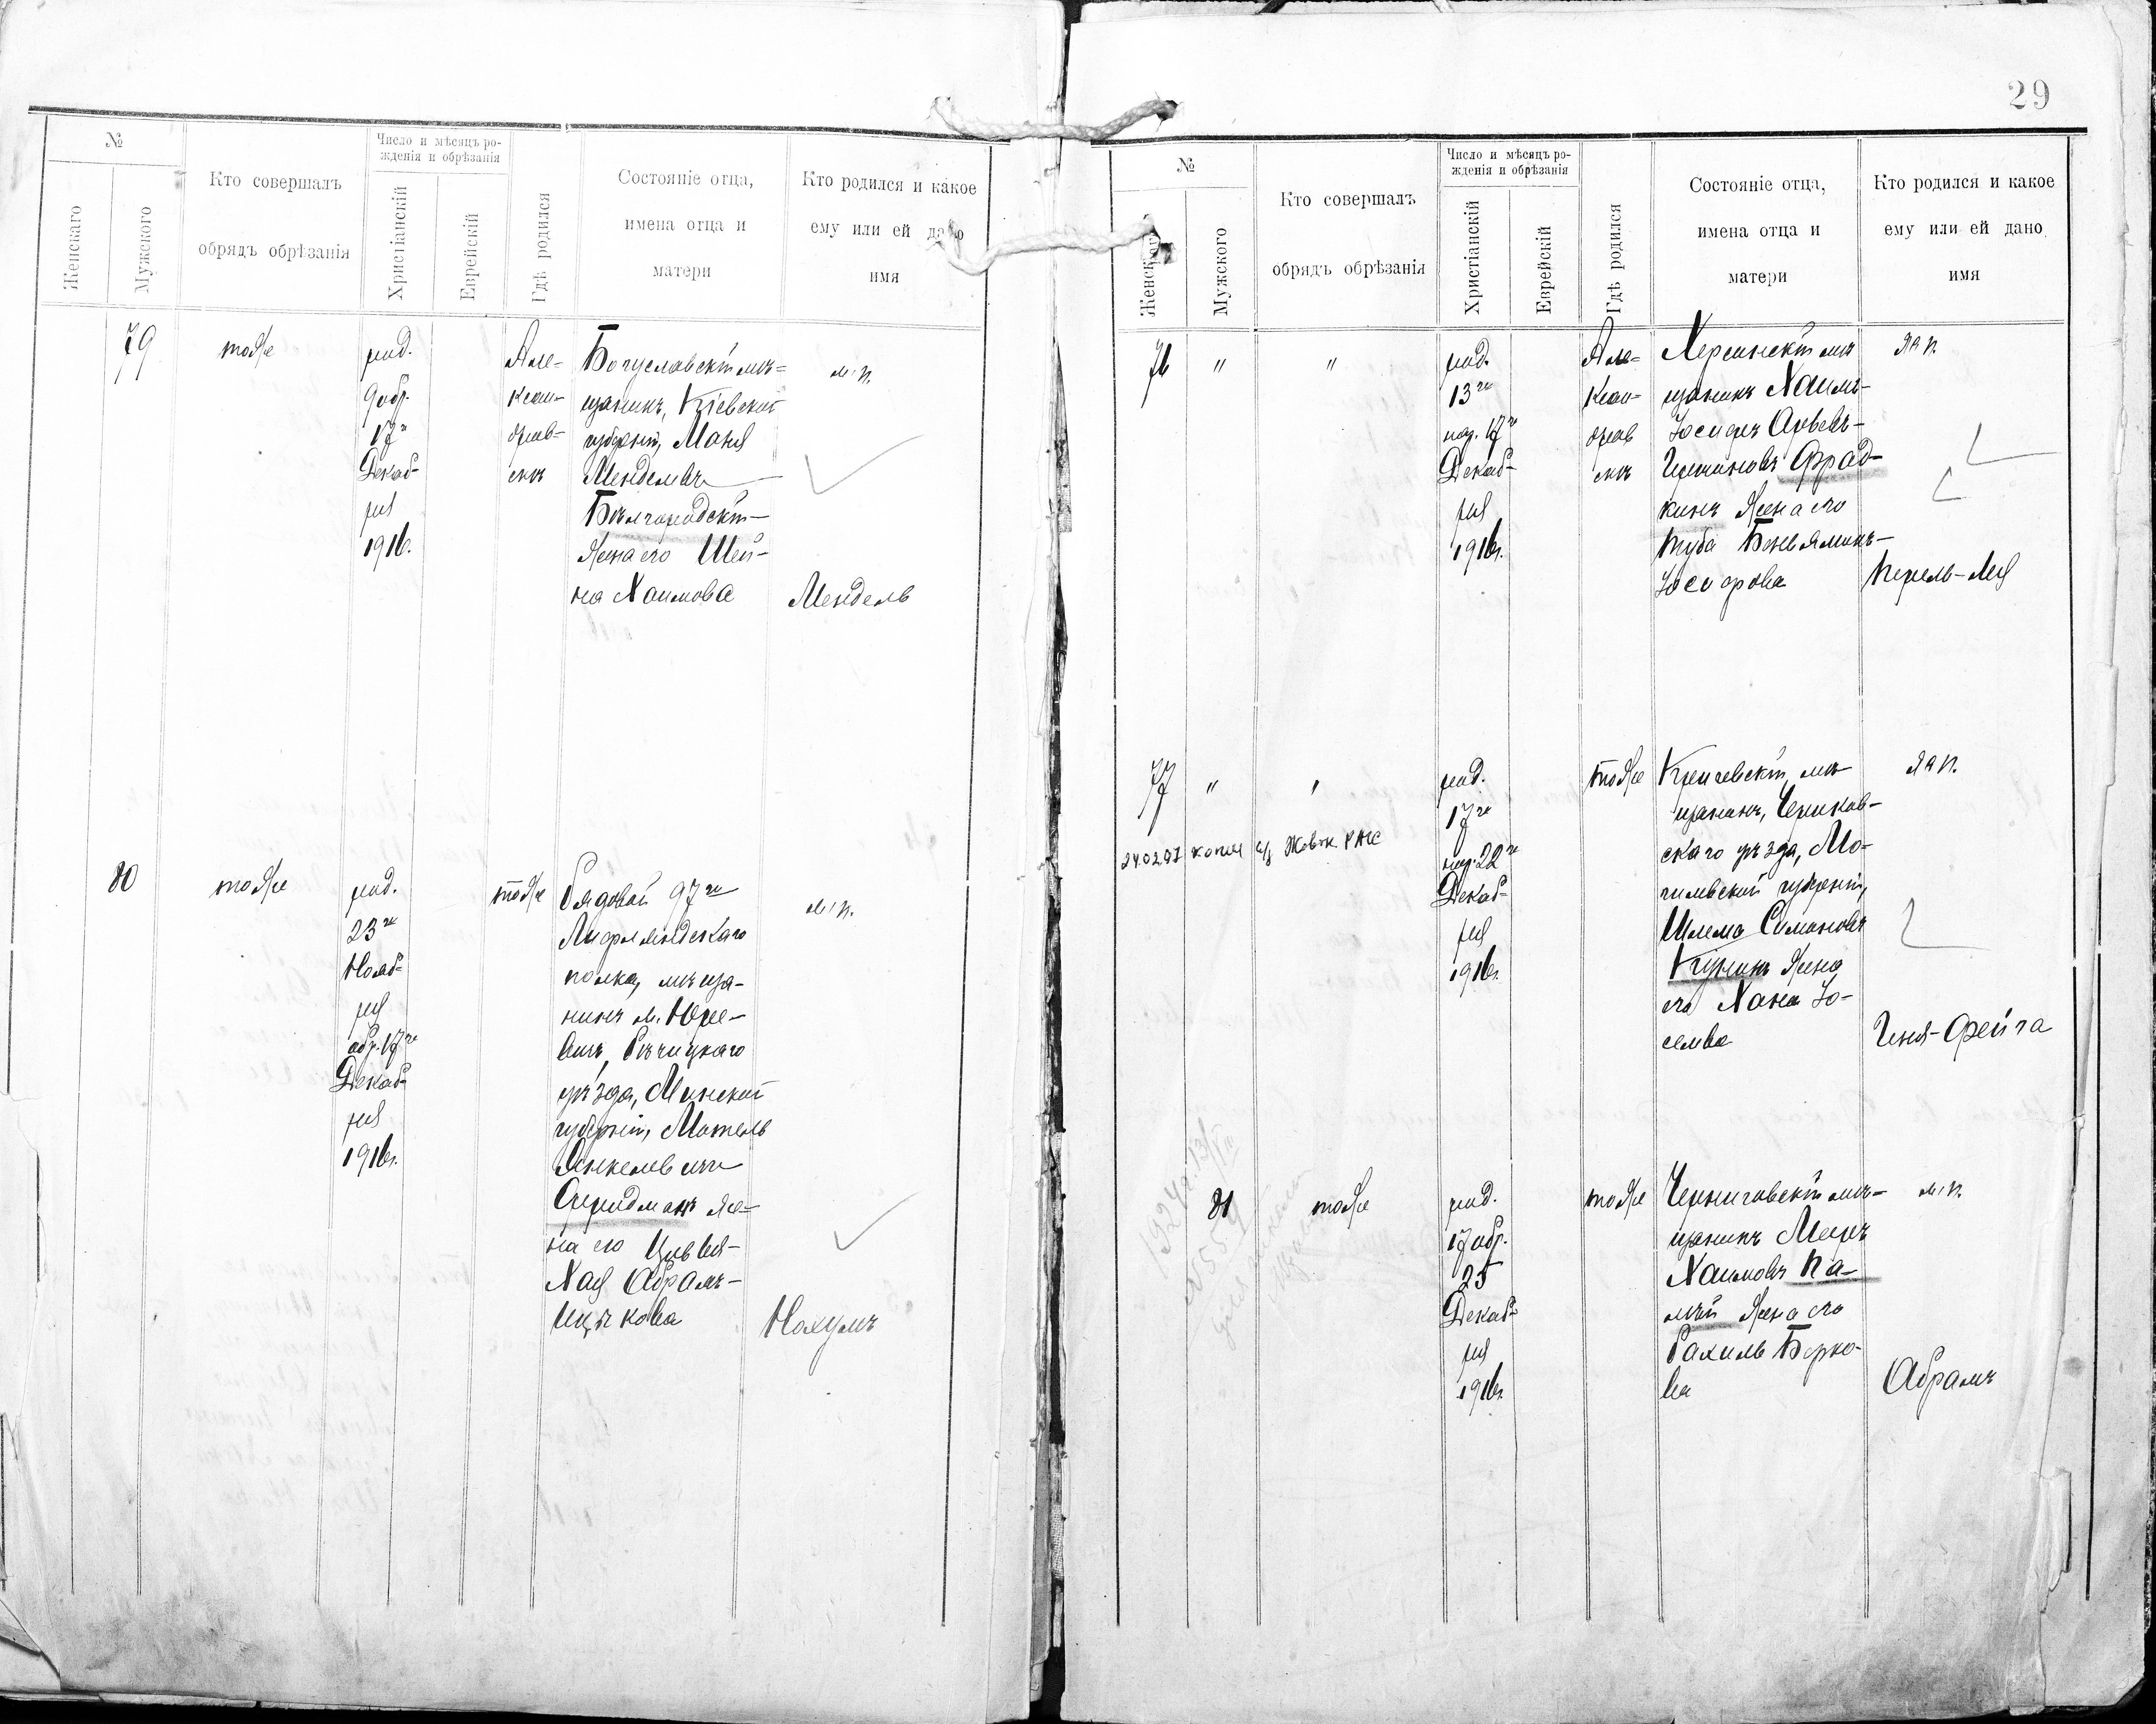 №
Женскаго
Мужского
Кто совершалъ
обрядъ обрѣзанія
Число и мѣсяцъ ро-
жденія и обрѣзанія
Христіанскій
Еврейскій
Гдѣ родился
Состояніе отца,
имена отца и
матери
Кто родился и какое
ему или ей дано
имя
79
тоже
род.
9 обр.
17го
Декаб-
ря
1916г.
Але-
ксан-
дров-
скъ
Богуславскій мѣ-
щанинъ, Кіевской
губерніи, Маня
Менделевъ
Бѣлгородскій
жена его Шей-
на Хаимова
м.п.
Мендель
80
тоже
род.
23го
Нояб-
ря
обр. 17го
Декаб-
ря
1916г.
тоже
Рядовой 97го
Лифляндскаго
полка, мѣща-
нинъ м. Юре-
вичъ, Рѣчицкаго
уѣзда, Минской
губерніи, Мотель
Янкелевичъ
жe-
на его Цивья-
Хая Абрамъ-
Ицькова
м.п.
Нохумъ
29
№
Женскаго
Мужского
Кто совершалъ
обрядъ обрѣзанія
Число и мѣсяцъ ро-
жденія и обрѣзанія
Христіанскій
Еврейскій
Гдѣ родился
Состояніе отца,
имена отца и
матери
Кто родился и какое
ему или ей дано
имя
76
"
"
род.
13го
нар. 17го
Декаб-
ря
1916г.
Але-
ксан-
дров
скъ
Херсонскій мѣ
щанинъ Хаимъ-
Іосифъ Арьевъ-
Гершиновъ Фрад-
кинъ жена его
Туба Беньяминъ-
Іосифова
ж.п.
Перель-Лея
77
"
"
род.
17го
нар. 22го
Декаб-
ря
1916г.
тоже
Кричевскій мѣ
щанинъ, Чериков-
скаго уѣзда, Мо-
гилевской губерніи,
Шлема Симоновъ
жена
его Хана Іо-
селева
ж.п.
Геня-Фейга
24.02.97 копия
81
тоже
род.
17 обр.
25
Декаб-
ря
1916г.
тоже
Черниговскій мѣ-
щанинъ Мееръ
Хаимовъ Па-
лѣй жена его
Рахиль Берко-
ва
м.п.
Абрамъ